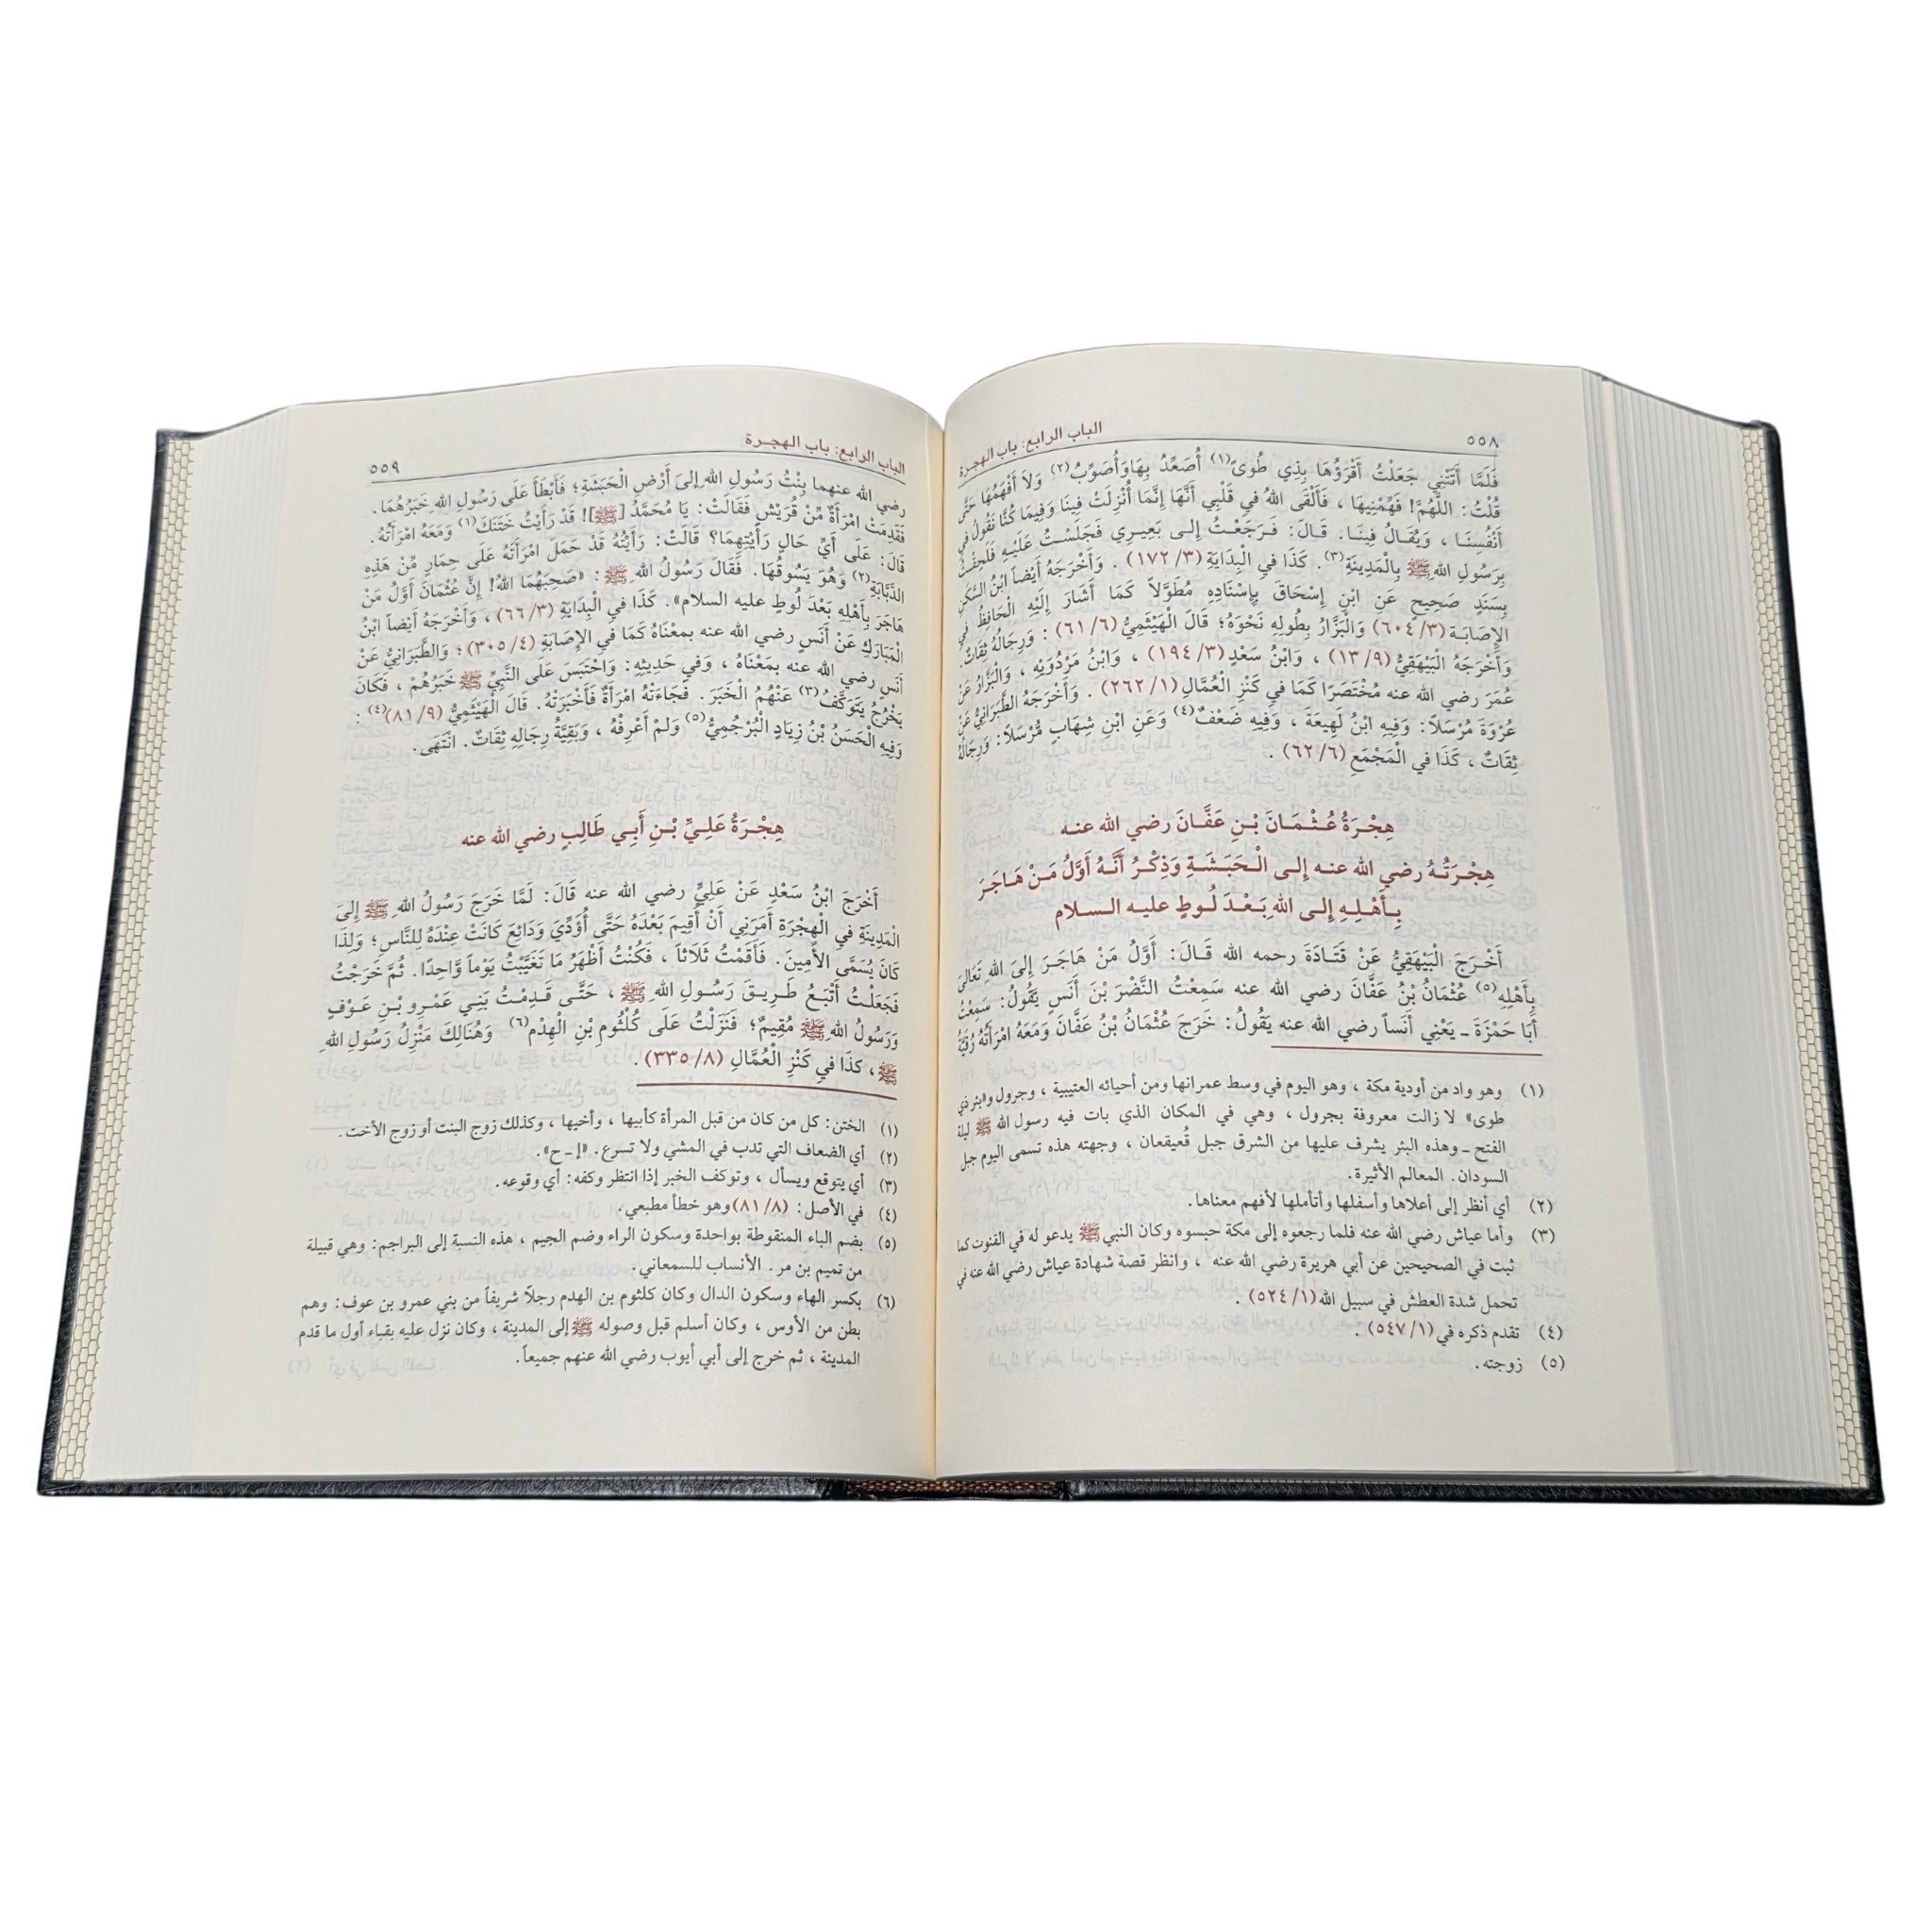 ٥٥٨ الباب الرابع: باب الهجرة
فَلَمَّا أَتَتْنِي جَعَلْتُ أَقْرَؤُهَا بِذِي طُوىً(١) أُصَعِّدُ بِهَا وَأُصَوِّبُ(٢) وَلَا أَفْهَمُهَا حَتَّى
قُلْتُ: اللَّهُمَّ! فَهِّمْنِيهَا ، فَأَلْقَى اللهُ في قَلْبِي أَنَّهَا إِنَّمَا أُنْزِلَتْ فِينَا وَفِيمَا كُنَّا نَقُولُ في
أَنْفُسِنَـا ، وَيُقَـالُ فِينَـا. قَـالَ: فَـرَجَعْـتُ إِلـى بَعِيـرِي فَجَلَسْـتُ عَلَيْـهِ فَلَحِقْـتُ
بِرَسُولِ اللهِ ﷺ بِالْمَدِينَةِ(٣). كَذَا فِي الْبِدَايَةِ (٣/ ١٧٢) . وَأَخْرَجَهُ أَيْضاً ابْنُ السَّكَنِ
بِسَنَدٍ صَحِيحٍ عَنِ ابْنِ إِسْحَاقَ بِإِسْنَادِهِ مُطَوَّلاً كَمَا أَشَارَ إِلَيْهِ الْحَافِظُ في
الإِصَابَـة (٣/ ٦٠٤) وَالْبَزَّارُ بِطُولِهِ نَحْوَهُ؛ قَالَ الْهَيْثَمِيُّ (٦/ ٦١) : وَرِجَالُهُ ثِقَاتٌ.
وَأَخْرَجَهُ الْبَيْهَقِيُّ (٩/ ١٣) ، وَابْنُ سَعْدٍ (٣/ ١٩٤) ، وَابْنُ مَرْدُوَيْهِ ، وَالْبَزَّارُ عَنْ
عُمَرَ رضي الله عنه مُخْتَصَرًا كَمَا في كَنْزِ الْعُمَّالِ (١/ ٢٦٢) . وَأَخْرَجَهُ الطَّبَرَانِيُّ عَنْ
عُرْوَةَ مُرْسَلاً: وَفِيهِ ابْنُ لَهِيعَةَ ، وَفِيهِ ضَعْفٌ(٤) وَعَنِ ابْنِ شِهَابٍ مُّرْسَلاً: وَرِجَالُهُ
ثِقَاتٌ ، كَذَا في الْمَجْمَعِ (٦/ ٦٢) .
هِجْـرَةُ عُـثْـمَـانَ بْـنِ عَفَّـانَ رضي الله عنـه
هِجْـرَتُـهُ رضي الله عنـه إِلـى الْـحَبَـشَـةِ وَذِكْـرُ أَنَّـهُ أَوَّلُ مَـنْ هَـاجَـرَ
بِـأَهْـلِـهِ إِلـى اللهِ بَـعْـدَ لُـوطٍ عليـه السـلام
أَخْـرَجَ الْبَيْهَقِيُّ عَنْ قَتَادَةَ رحمه الله قَـالَ: أَوَّلُ مَنْ هَاجَـرَ إِلىَ اللهِ تَعَالىَ
بِأَهْلِهِ(٥) عُثْمَانُ بْنُ عَفَّانَ رضي الله عنه سَمِعْتُ النَّضْرَ بْنَ أَنَسٍ يَّقُولُ: سَمِعْتُ
أَبَا حَمْزَةَ ـ يَعْنِي أَنَساً رضي الله عنه يَقُولُ: خَرَجَ عُثْمَانُ بْنُ عَفَّانَ وَمَعَهُ امْرَأَتُهُ رُقَيَّةُ
(١) وهو واد من أودية مكة ، وهو اليوم في وسط عمرانها ومن أحيائه العتيبية ، وجرول و«بئر ذي
طوى» لا زالت معروفة بجرول ، وهي في المكان الذي بات فيه رسول الله ﷺ ليلة
الفتح ـ وهذه البئر يشرف عليها من الشرق جبل قُعيقعان ، وجهته هذه تسمى اليوم جبل
السودان. المعالم الأثيرة.
(٢) أي أنظر إلى أعلاها وأسفلها وأتأملها لأفهم معناها.
(٣) وأما عياش رضي الله عنه فلما رجعوه إلى مكة حبسوه وكان النبي ﷺ يدعو له في القنوت كما
ثبت في الصحيحين عن أبي هريرة رضي الله عنه ، وانظر قصة شهادة عياش رضي الله عنه في
تحمل شدة العطش في سبيل الله (١/ ٥٢٤) .
(٤) تقدم ذكره في (١/ ٥٤٧) .
(٥) زوجته.
الباب الرابع: باب الهجـرة ٥٥٩
رضي الله عنهما بِنْتُ رَسُولِ اللهِ إِلىَ أَرْضِ الْحَبَشَةِ؛ فَأَبْطَأَ عَلَى رَسُولِ اللهِ خَبَرُهُمَا.
فَقَدِمَتْ امْرَأَةٌ مِّنْ قُرَيْشٍ فَقَالَتْ: يَا مُحَمَّدُ [ﷺ]! قَدْ رَأَيْتُ خَتَنَكَ(١) وَمَعَهُ امْرَأَتُهُ.
قَالَ: عَلَى أَيِّ حَالٍ رَأَيْتِهِمَا؟ قَالَتْ: رَأَيْتُهُ قَدْ حَمَلَ امْرَأَتَهُ عَلَى حِمَارٍ مِّنْ هَذِهِ
الدَّبَّابَةِ(٢) وَهُوَ يَسُوقُهَا. فَقَالَ رَسُولُ اللهِ ﷺ: «صَحِبَهُمَا اللهُ! إِنَّ عُثْمَانَ أَوَّلُ مَنْ
هَاجَرَ بِأَهْلِهِ بَعْدَ لُوطٍ عليه السلام». كَذَا في الْبِدَايَةِ (٣/ ٦٦) ، وَأَخْرَجَهُ أَيْضاً ابْنُ
الْمُبَارَكِ عَنْ أَنَسٍ رضي الله عنه بِمَعْنَاهُ كَمَا في الإِصَابَةِ (٤/ ٣٠٥) ؛ وَالطَّبَرَانِيُّ عَنْ
أَنَسٍ رضي الله عنه بِمَعْنَاهُ ، وَفي حَدِيثِهِ: وَاحْتَبَسَ عَلَى النَّبِيِّ ﷺ خَبَرُهُمْ ، فَكَانَ
يَخْرُجُ يَتَوَكَّفُ(٣) عَنْهُمُ الْخَبَرَ. فَجَاءَتْهُ امْرَأَةٌ فَأَخْبَرَتْهُ. قَالَ الْهَيْثَمِيُّ (٩/ ٨١)(٤) :
وَفِيهِ الْحَسَنُ بْنُ زِيَادٍ الْبُرْجُمِيُّ(٥) وَلَمْ أَعْرِفْهُ ، وَبَقِيَّةُ رِجَالِهِ ثِقَاتٌ. انْتَهَى.
هِجْـرَةُ عَلِـيِّ بْـنِ أَبِـي طَالِبٍ رضي الله عنه
أَخْرَجَ ابْنُ سَعْدٍ عَنْ عَلِيٍّ رضي الله عنه قَالَ: لَمَّا خَرَجَ رَسُولُ اللهِ ﷺ إِلىَ
الْمَدِينَةِ في الْهِجْرَةِ أَمَرَنِي أَنْ أُقِيمَ بَعْدَهُ حَتَّى أُؤَدِّيَ وَدَائِعَ كَانَتْ عِنْدَهُ لِلنَّاسِ؛ وَلِذَا
كَانَ يُسَمَّى الأَمِينَ. فَأَقَمْتُ ثَلَاثاً ، فَكُنْتُ أَظْهَرُ مَا تَغَيَّبْتُ يَوْماً وَّاحِدًا. ثُمَّ خَرَجْتُ
فَجَعَلْـتُ أَتْبَـعُ طَـرِيـقَ رَسُـولِ اللهِ ﷺ ، حَتَّـى قَـدِمْـتُ بَنِـي عَمْـرِو بْـنِ عَـوْفٍ
وَرَسُولُ اللهِ ﷺ مُقِيمٌ؛ فَنَزَلْتُ عَلَى كُلْثُومِ بْنِ الْهِدْمِ(٦) وَهُنَالِكَ مَنْزِلُ رَسُولِ اللهِ
ﷺ ، كَذَا فِي كَنْزِ الْعُمَّالِ (٨/ ٣٣٥) .
(١) الختن: كل من كان من قبل المرأة كأبيها ، وأخيها ، وكذلك زوج البنت أو زوج الأخت.
(٢) أي الضعاف التي تدب في المشي ولا تسرع. «إ ـ ح».
(٣) أي يتوقع ويسأل ، وتوكف الخبر إذا انتظر وكفه: أي وقوعه.
(٤) في الأصل: (٨/ ٨١) وهو خطأ مطبعي.
(٥) بضم الباء المنقوطة بواحدة وسكون الراء وضم الجيم ، هذه النسبة إلى البراجم: وهي قبيلة
من تميم بن مر. الأنساب للسمعاني.
(٦) بكسر الهاء وسكون الدال وكان كلثوم بن الهدم رجلاً شريفاً من بني عمرو بن عوف: وهم
بطن من الأوس ، وكان أسلم قبل وصوله ﷺ إلى المدينة ، وكان نزل عليه بقباء أول ما قدم
المدينة ، ثم خرج إلى أبي أيوب رضي الله عنهم جميعاً.